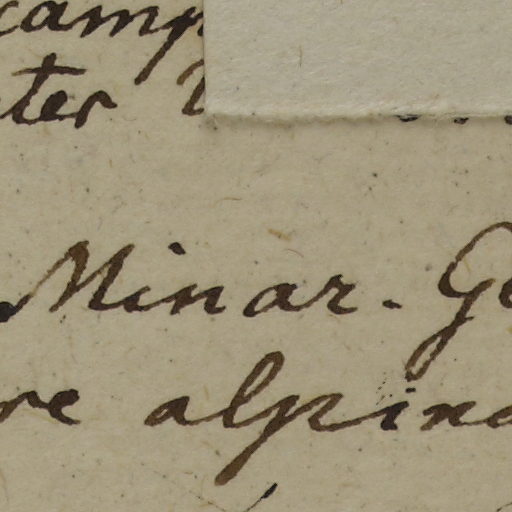 camp
ter
Minar. Ge
re alpina